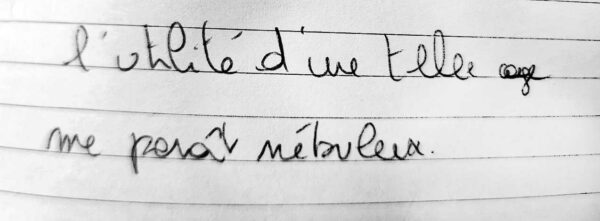 l'utilité d'une telle
me paraît nébuleux.